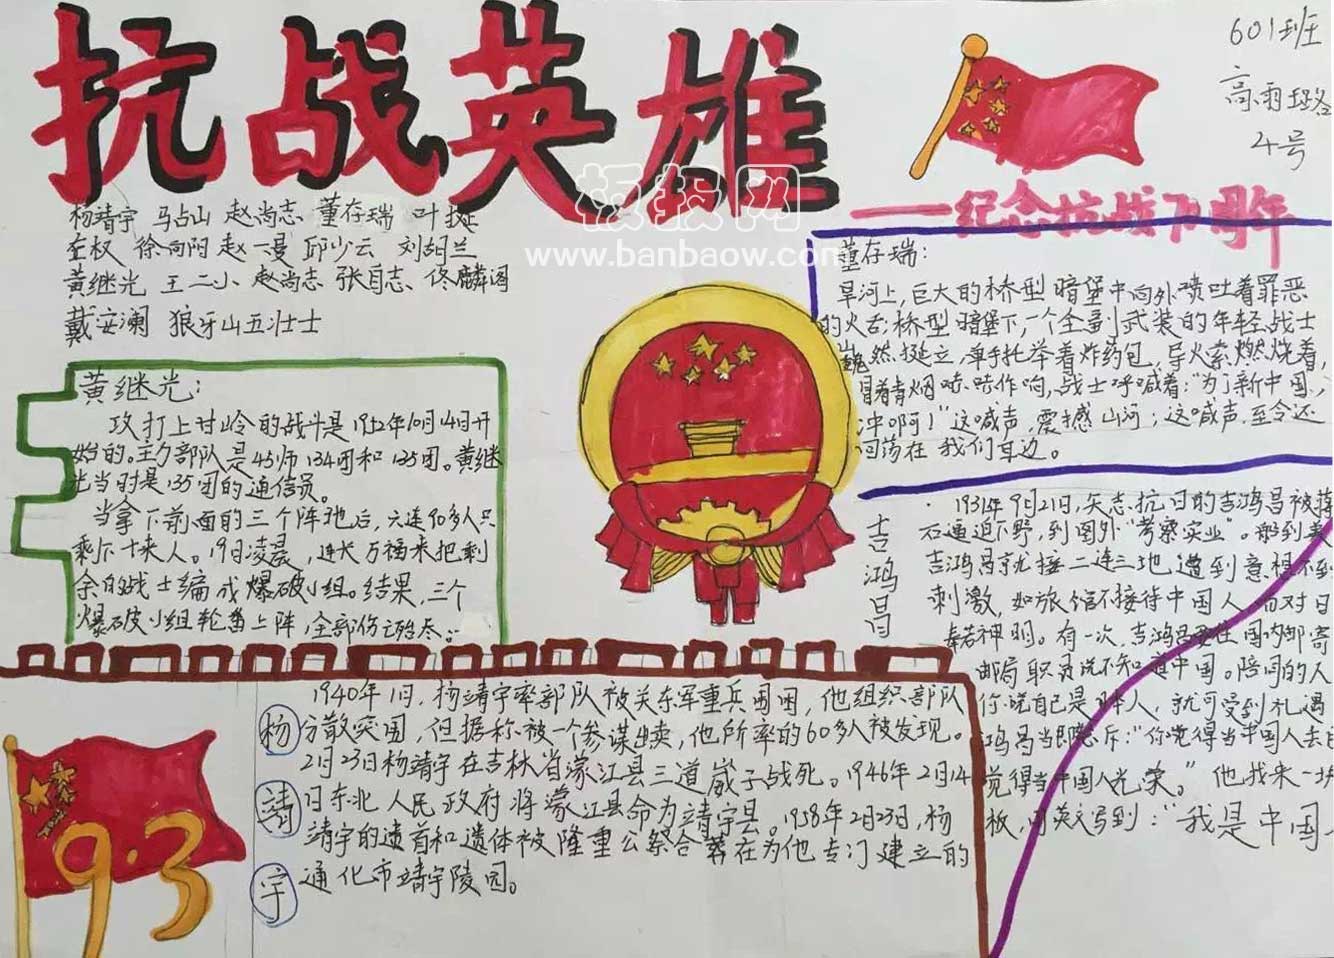 抗战英雄
601班
高雨璐
4号
——纪念抗战70周年
板报网
www.banbaow.com
杨靖宇 马占山 赵尚志 董存瑞 叶挺
左权 徐向阳 赵一曼 邱少云 刘胡兰
黄继光 王二小 赵尚志 张自志 佟麟阁
戴安澜 狼牙山五壮士
黄继光：
攻打上甘岭的战斗是1952年10月14日开
始的。主力部队是45师134团和135团。黄继
光当时是135团的通信员。
当拿下前面的三个阵地后，六连90多人只
剩下十来人。19日凌晨，连长万福来把剩
余的战士编成爆破小组。结果，三个
爆破小组轮番上阵，全部伤亡殆尽。
董存瑞：
旱河上，巨大的桥型暗堡中向外喷吐着罪恶
的火舌；桥型暗堡下，一个全副武装的年轻战士
巍然挺立，单手托举着炸药包，导火索燃烧着，
冒着青烟哧哧作响，战士呼喊着：“为了新中国，
冲啊！”这喊声，震撼山河；这喊声，至今还
回荡在我们耳边。
吉鸿昌
1931年9月21日，矢志抗日的吉鸿昌被蒋
石逼迫下野，到国外“考察实业”。船到美
吉鸿昌就接二连三地遭到意想不到
刺激，如旅馆不接待中国人，而对日
奉若神明。有一次，吉鸿昌要往国内邮寄
邮局职员说不知道中国。陪同的人
你说自己是日本人，就可受到礼遇
鸿昌当即怒斥：“你觉得当中国人丢
觉得当中国人光荣。”他找来一块
板，用英文写到：“我是中国
杨靖宇
1940年1月，杨靖宇率部队被关东军重兵围困，他组织部队
分散突围，但据称被一个参谋出卖，他所率的60多人被发现。
2月23日杨靖宇在吉林省濛江县三道崴子战死。1946年2月14
日东北人民政府将濛江县命为靖宇县。1958年2月23日，杨
靖宇的遗首和遗体被隆重公祭合葬在为他专门建立的
通化市靖宇陵园。
9·3